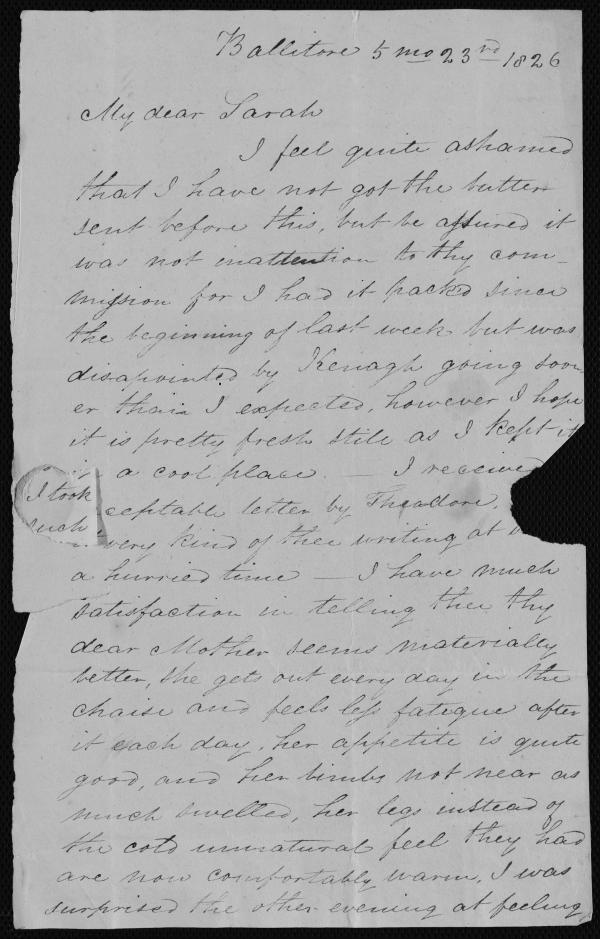 Ballitore 5 mo 23rd 1826
My dear Sarah
I feel quite ashamed
that I have not got the butter
sent before this, but be assured it
was not inattention to thy com-
mission for I had it packd since
the beginning of last week but was
disapointed by Kenagh going soon
er than I expected, however I hope
it is pretty fresh still as I kept it
a cool place. — I received
I took
such
ceptable letter by Theodore,
very kind of thee writing at
a hurried time — I have much
satisfaction in telling thee thy
dear Mother seems materially
better, she gets out every day in the
chaise and feels less fatigue after
it each day, her appetite is quite
good, and her limbs not near as
much swelled, her legs instead of
the cold unnatural feel they had
are now comfortably warm, I was
surprised the other evening at feeling